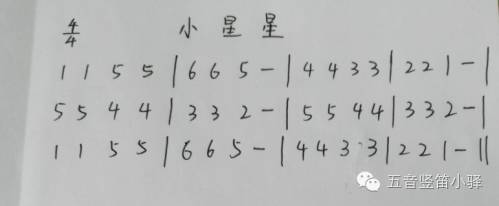 4/4 小星星
1 1 5 5 | 6 6 5 - | 4 4 3 3 | 2 2 1 - |
5 5 4 4 | 3 3 2 - | 5 5 4 4 | 3 3 2 - |
1 1 5 5 | 6 6 5 - | 4 4 3 3 | 2 2 1 - ||
五音竖笛小驿